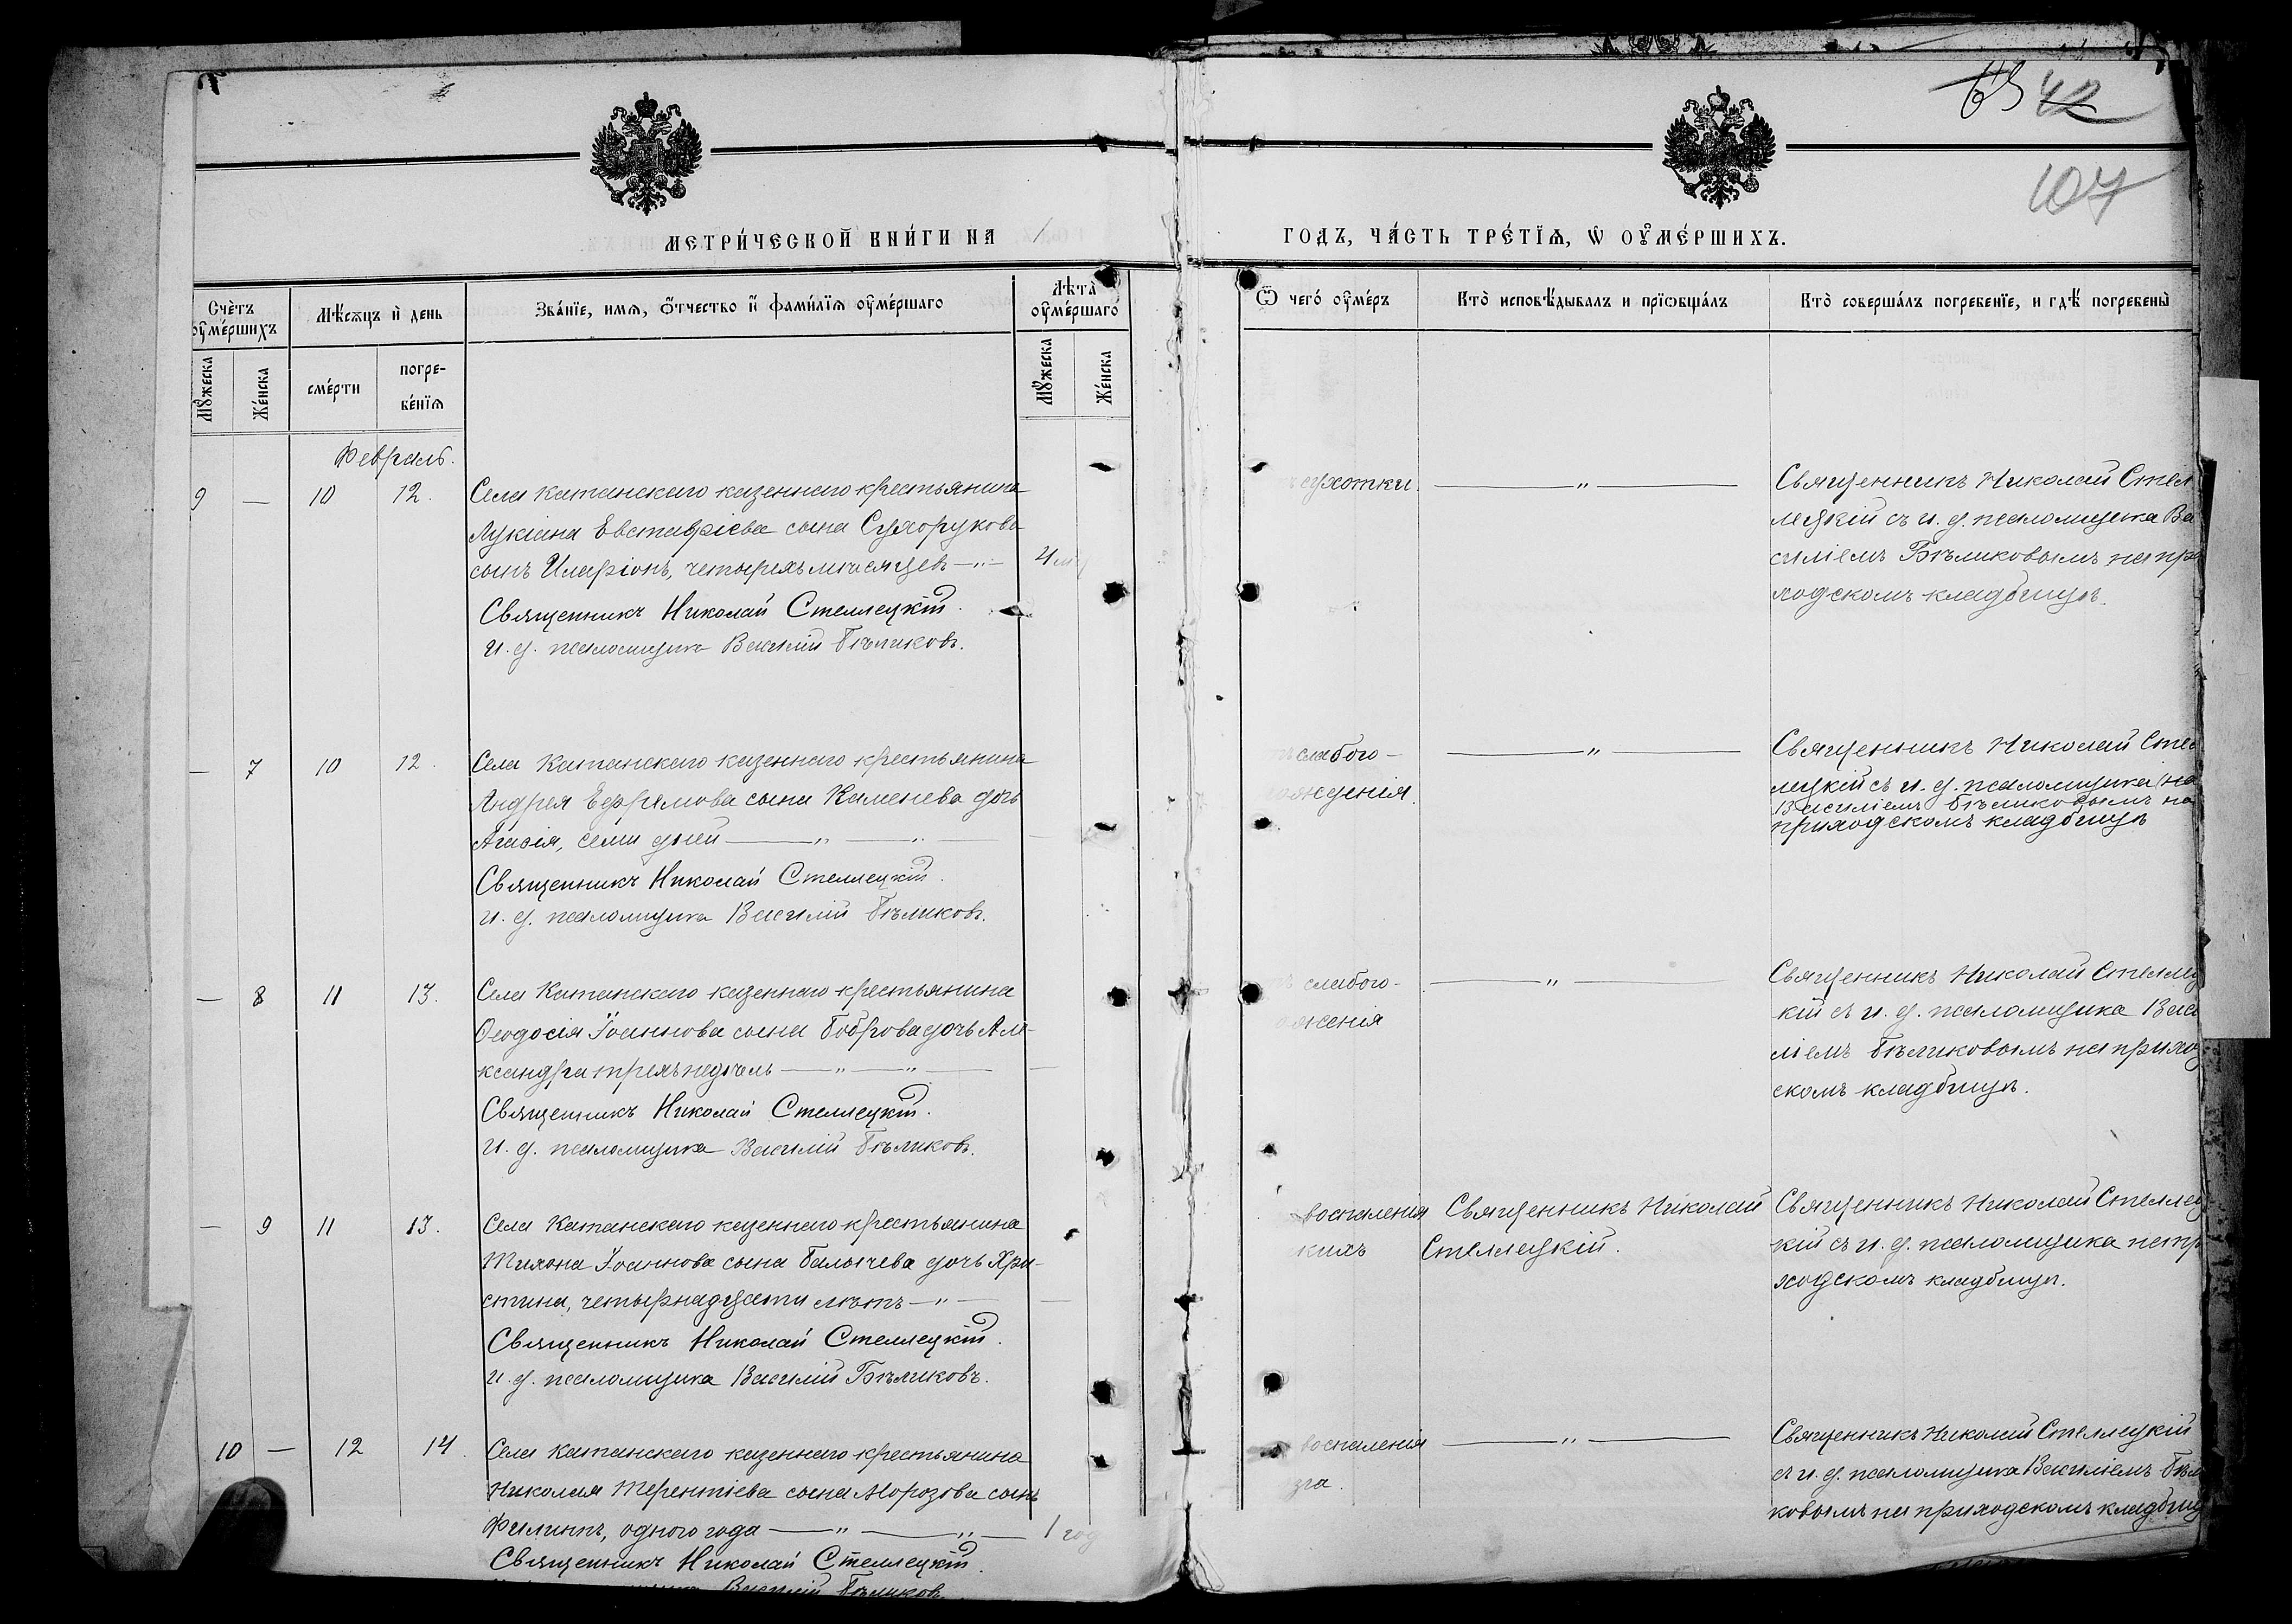 42
107
МЕТРИ́ЧЕСКОЙ КНИ́ГИ НА 1
ГОДЪ, ЧА́СТЬ ТРЕ́ТЇѦ, Ѡ ОУ҆МЕ́РШИХЪ.
Счѐтъ оу҆ме́ршихъ
Мѣ́сѧцъ и҆ день
Зва́нїе, имѧ, ѻ҆́тчество и҆ фами́лїѧ оу҆ме́ршаго
Лѣта̀ оу҆ме́ршаго
Ѿ чегѡ́ оу҆ме́ръ
Кто̀ исповѣ́дывалъ и прїѡбща́лъ
Кто̀ соверша́лъ погребенїе, и гдѣ̀ погребены̀
Мꙋ́жеска
Же́нска
сме́рти
погре-
бе́нїѧ
Мꙋ́жеска
Же́нска
Февраль.
9 — 10 12.
Села Катанскаго казеннаго крестьянина
Лукіана Евстафіева сына Сухорукова
сынъ Иларіонъ, четырехъ мѣсяцевъ —"— 4 м
Священникъ Николай Стеллецкій.
И. д. псаломщика Василій Бѣликовъ.
сухотки
— " —
Священникъ Николай Стел
лецкій съ и. д. псаломщика Ва
силіемъ Бѣликовымъ на при
ходскомъ кладбищѣ.
— 7 10 12.
Села Катанскаго казеннаго крестьянина
Андрея Ефремова сына Каменева дочь
Агаѳія, семи дней — " — " —
Священникъ Николай Стеллецкій.
и. д. псаломщика Василій Бѣликовъ.
слабого-
рожденія.
— " —
Священникъ Николай Стел
лецкій съ и. д. псаломщика (на
Василіемъ Бѣликовымъ на
приходскомъ кладбищѣ
— 8 11 13.
Села Катанскаго казеннаго крестьянина
Ѳеодосія Іоаннова сына Боброва дочь Але-
ксандра трехъ недѣль — " — " —
Священникъ Николай Стеллецкій.
И. д. псаломщика Василій Бѣликовъ.
слабого-
ожения
— " —
Священникъ Николай Стеллец
кій съ и. д. псаломщика Васи
ліемъ Бѣликовымъ на приход
скомъ кладбищѣ.
— 9 11 13.
Села Катанскаго казеннаго крестьянина
Тихона Іоаннова сына Балычева дочь Хри-
стина, четырнадцати лѣтъ — " —
Священникъ Николай Стеллецкій.
И. д. псаломщика Василій Бѣликовъ.
воспаления
кихъ
Священникъ Николай
Стеллецкій.
Священникъ Николай Стеллец
кій съ и. д. псаломщика на пр
ходскомъ кладбищѣ.
10 — 12 14
Села Катанскаго казеннаго крестьянина
Николая Терентіева сына Морозова сынъ
Филиппъ, одного года — " — " — 1 год
Священникъ Николай Стеллецкій.
Василій Бѣликовъ.
воспаления
зга.
— " —
Священникъ Николай Стеллецкій
съ и. д. псаломщика Василіемъ Бѣли
ковымъ на приходскомъ кладбищ